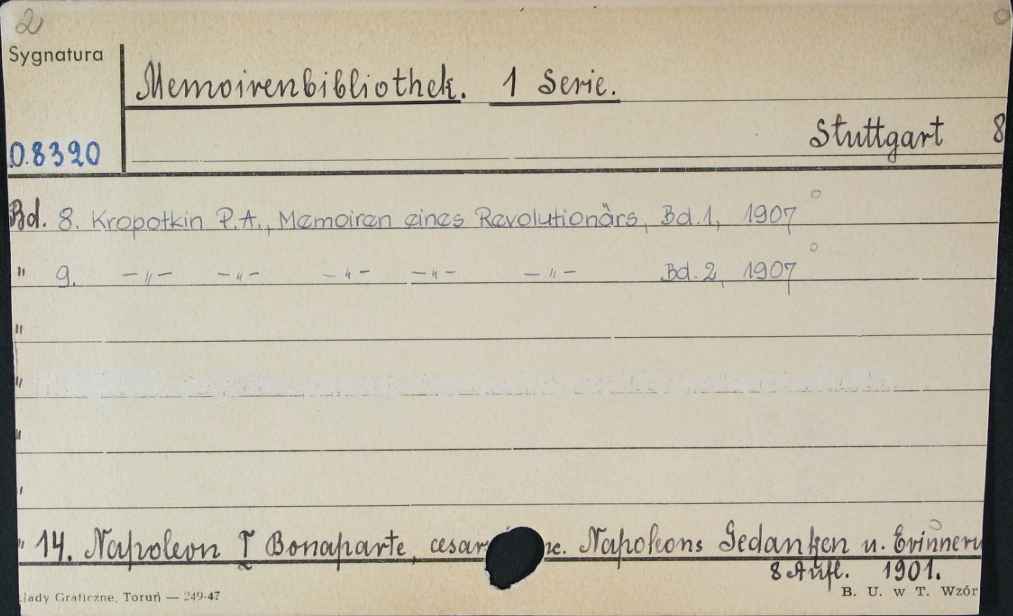 2
Sygnatura
Memoirenbibliothek. 1 Serie.
Stuttgart 8
O.8390
Bd. 8. Kropotkin P.A., Memoiren eines Revolutionärs, Bd.1, 1907
" 9. —"— —"— —"— —"— —"— Bd.2, 1907
"
"
"
"
" 14. Napoleon I Bonaparte, cesarz Napoleons Gedanken u. Erinneru
8 Aufl. 1901.
łady Graficzne, Toruń — 249-47
B. U. w T. Wzór